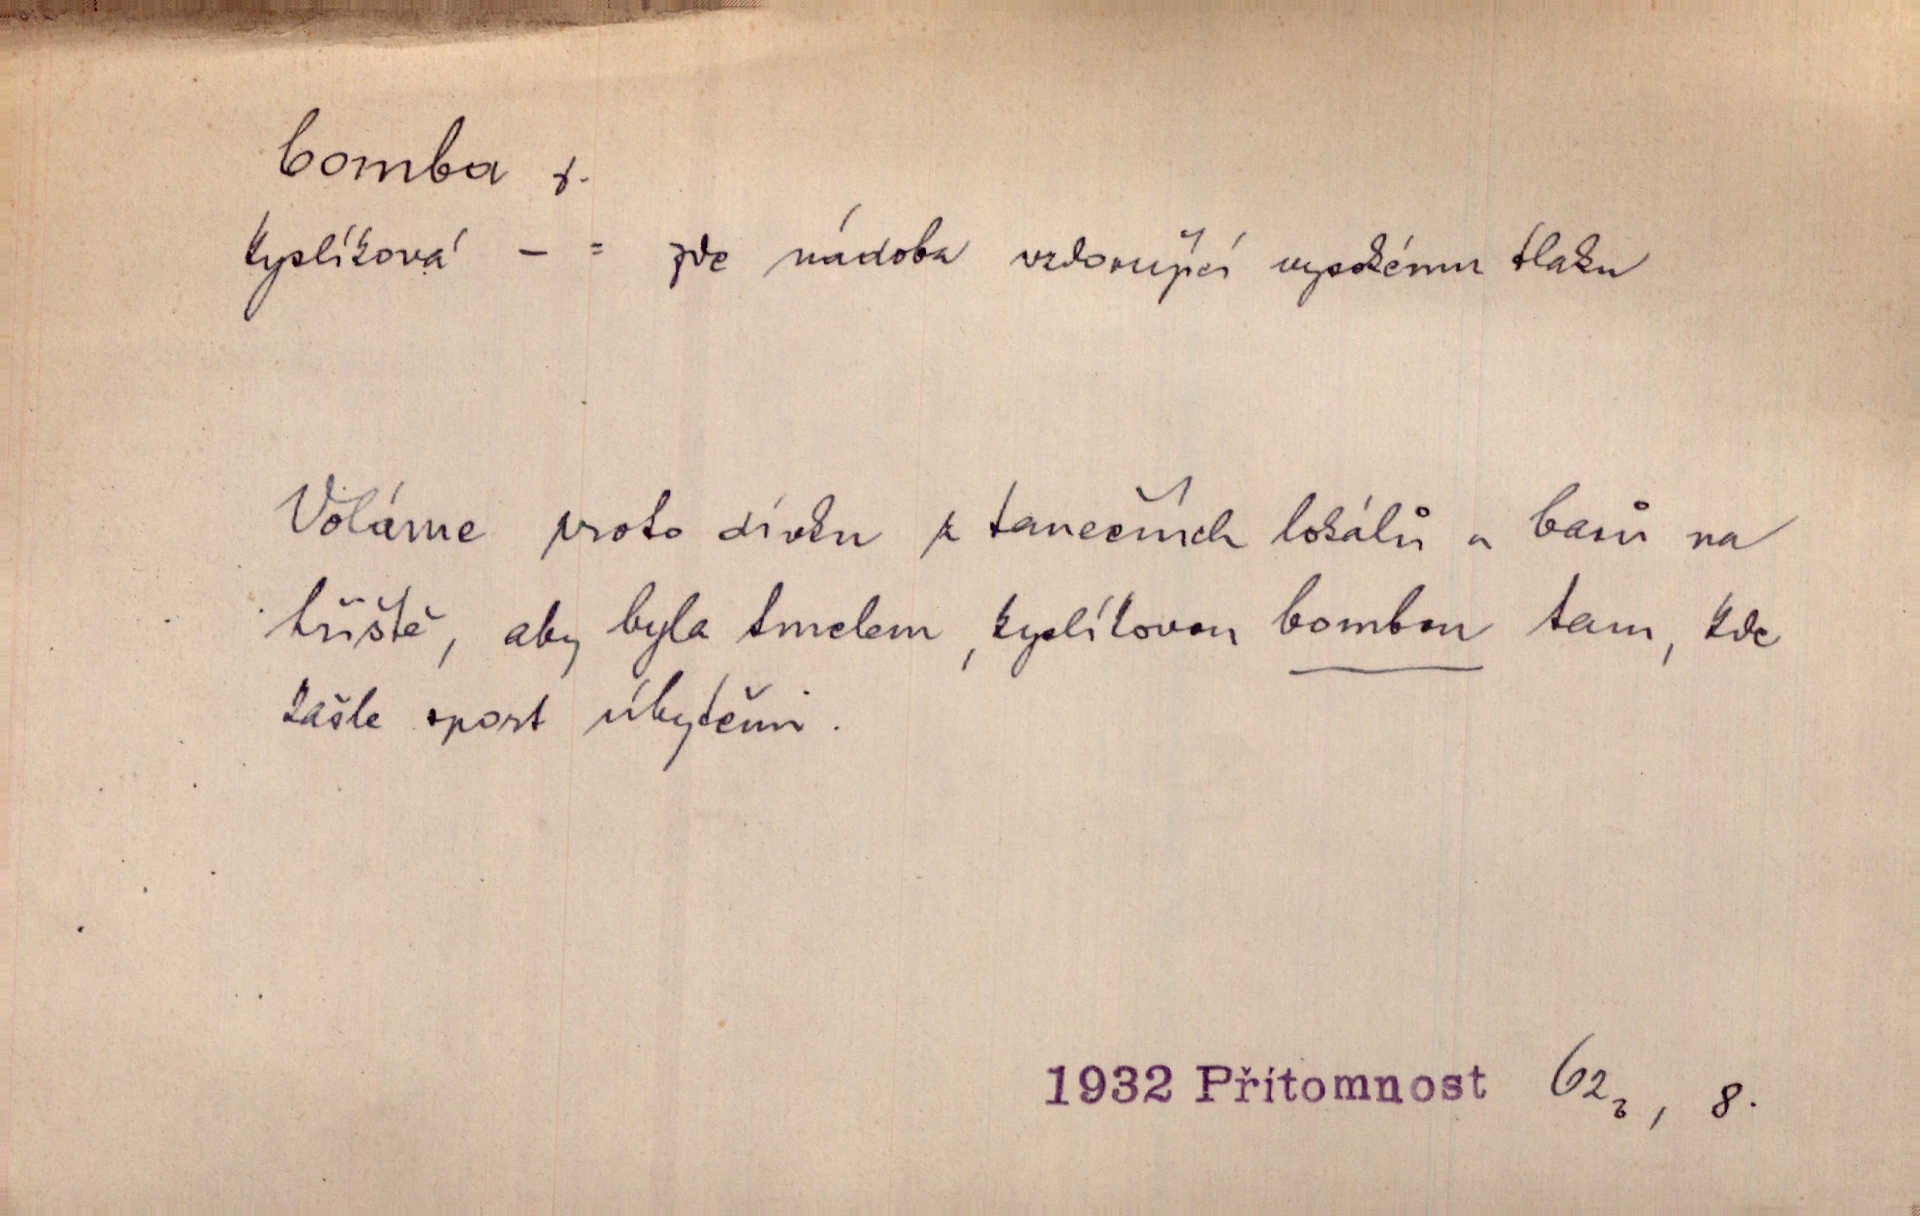 bomba f.
kyslíková - = zde nádoba vzdorující vysokému tlaku
Voláme proto dívku z tanečních lokálů a barů na
hřiště, aby byla tmelem, kyslíkovou bombou tam, kde
kašle sport úbytěmi.
1932 Přítomnost 62₂, 8.